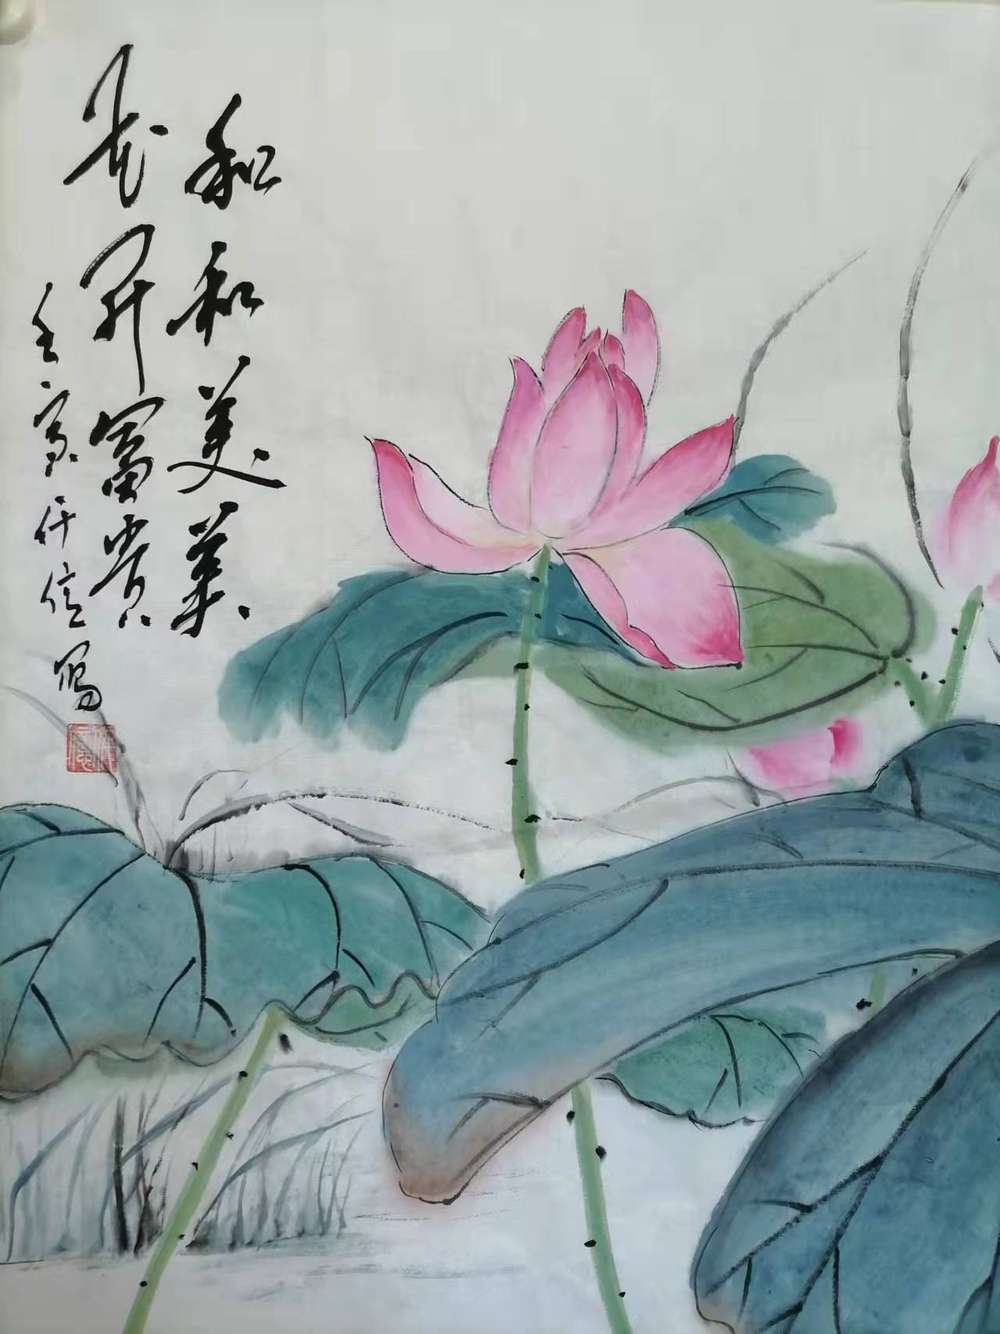 和和美美
花开富贵
壬寅仟信写